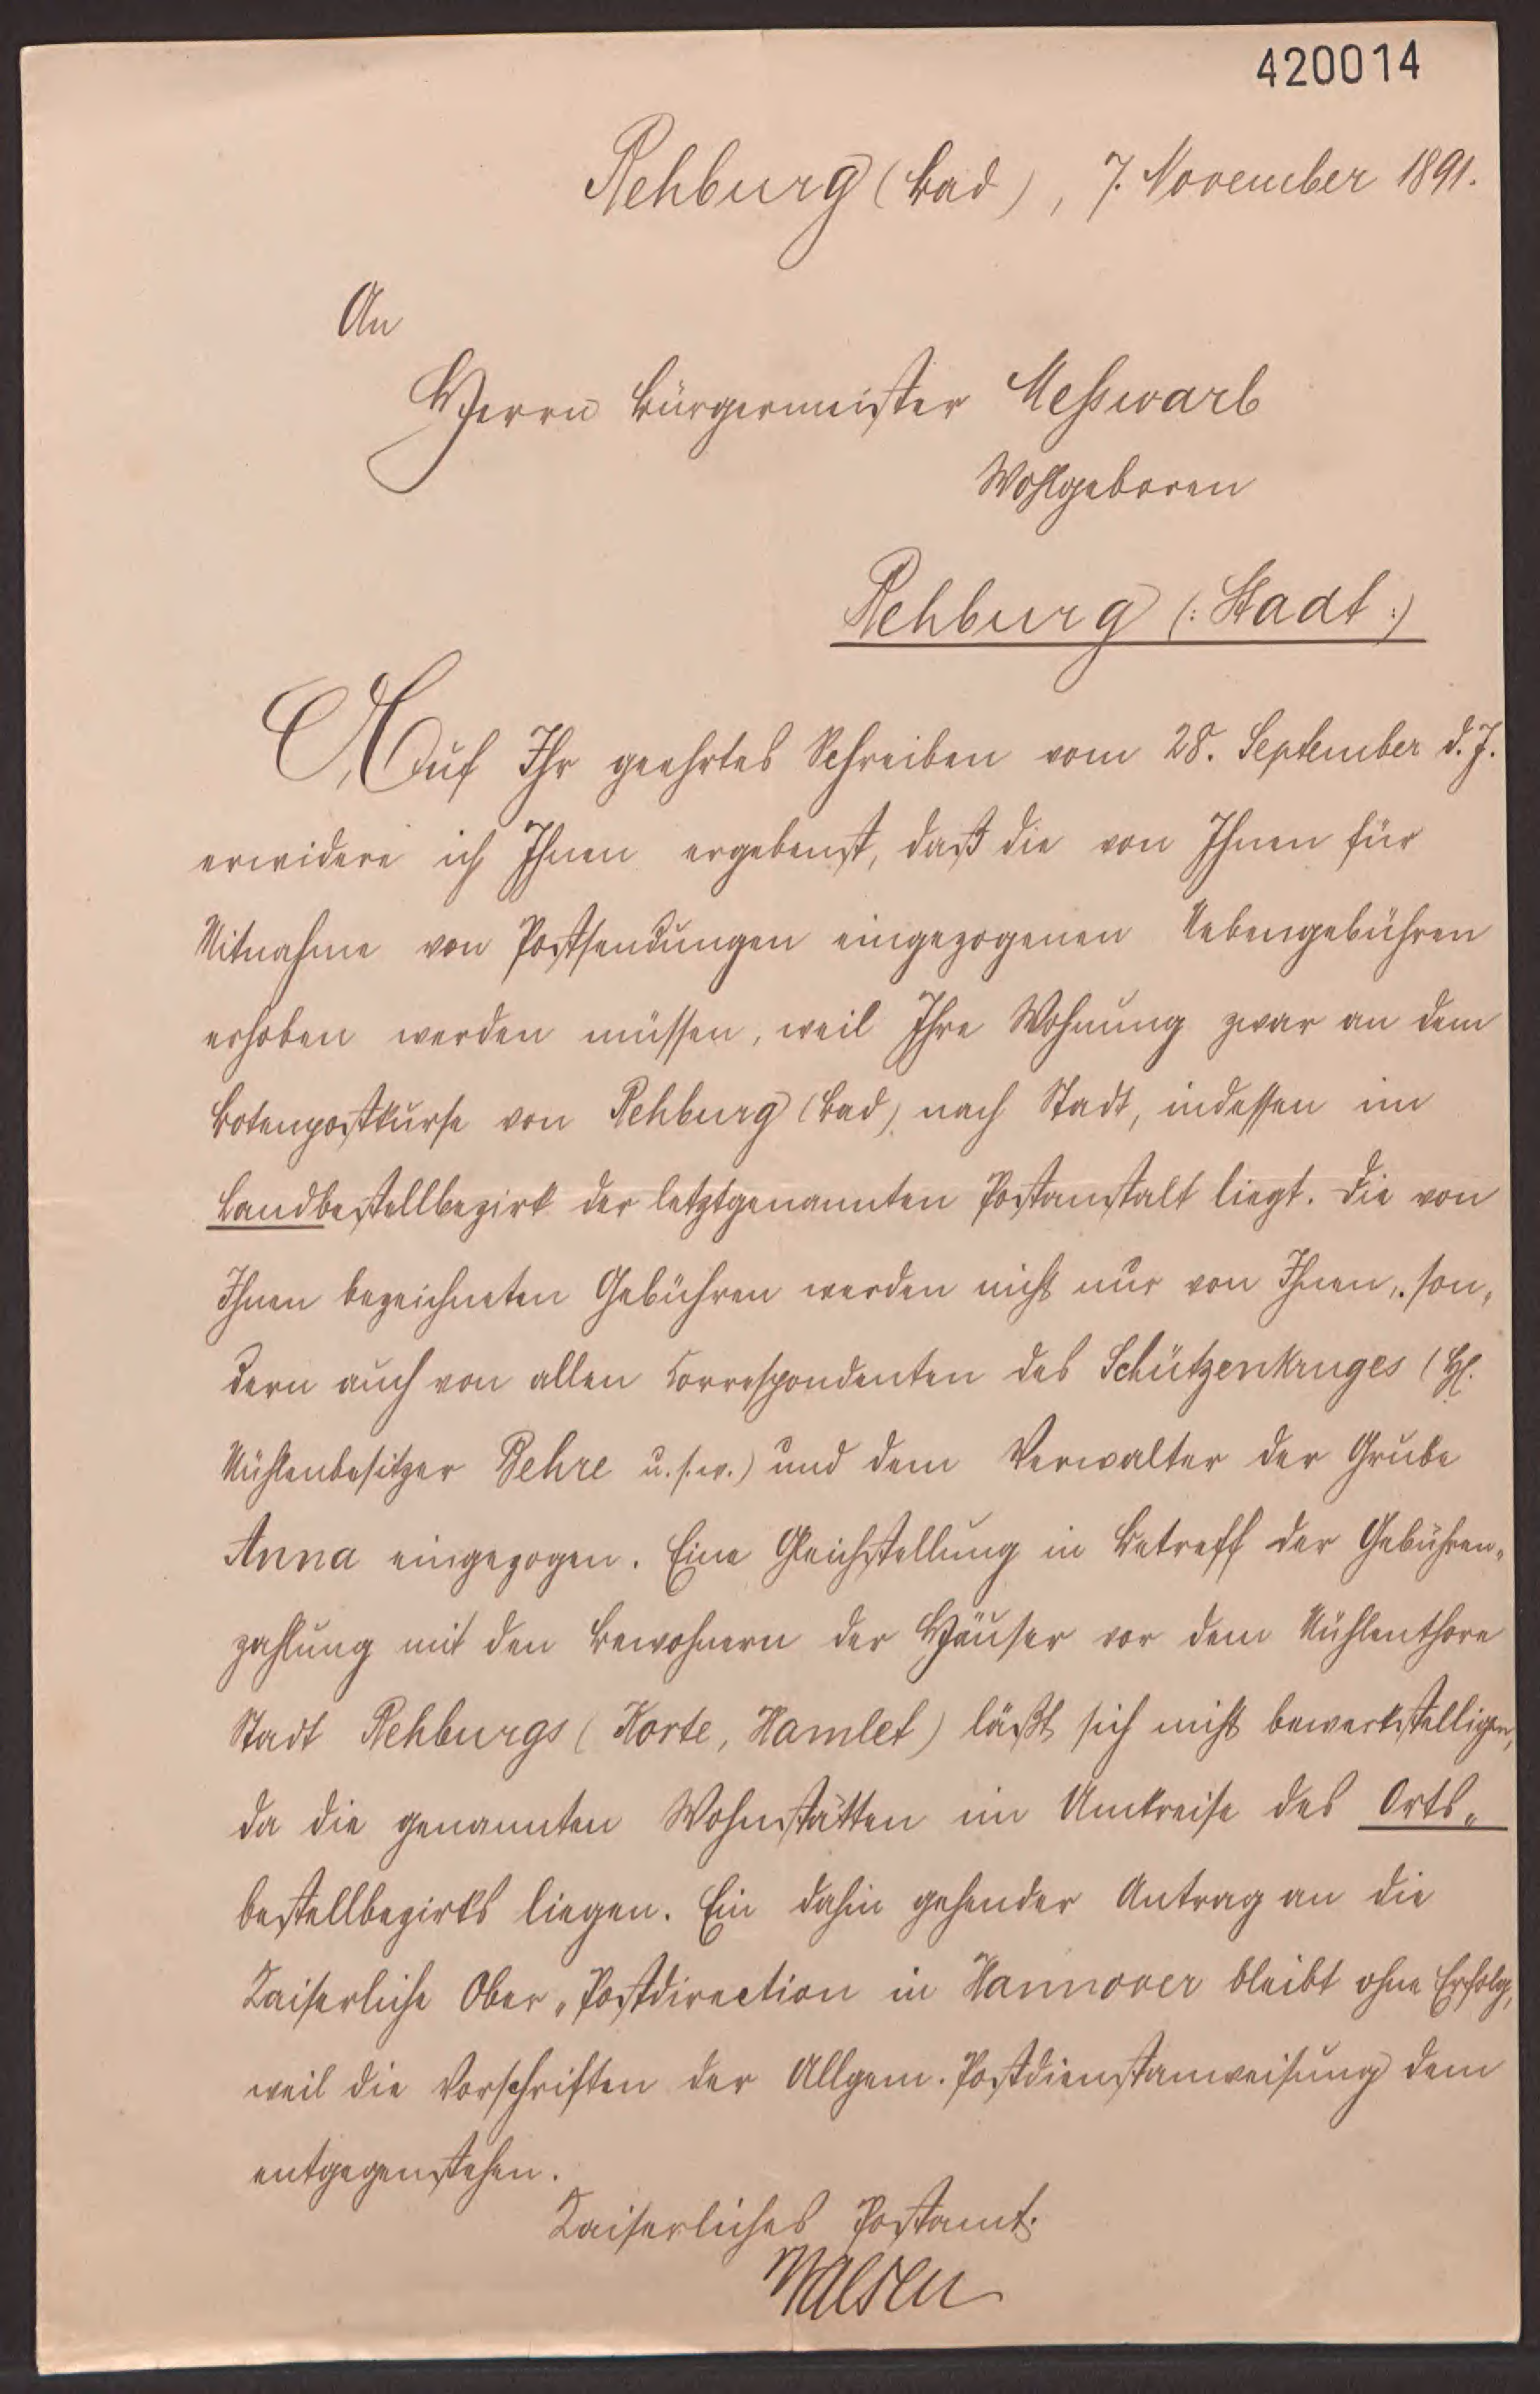 420014
Rehburg (Bad), 7. November 1891.
An
Herrn Bürgermeister Meßwarb
Wohlgeboren
Rehburg (: Stadt :)
Auf Ihr geehrtes Schreiben vom 28. September d. J.
erwidere ich Ihnen ergebenst, daß die von Ihnen für
Mitnahme von Postsendungen eingezogenen Nebengebühren
erhoben werden müssen, weil Ihre Wohnung zwar an dem
Botenpostkurse von Rehburg (Bad) nach Stadt, indessen im
Landbestellbezirk der letztgenannten Postanstalt liegt. Die von
Ihnen bezeichneten Gebühren werden nicht nur von Ihnen, son-
dern auch von allen Correspondenten des Schützenkruges (H.
Mühlenbesitzer Behre u. s. w.) und dem Verwalter der Grube
Anna eingezogen. Eine Gleichstellung in Betreff der Gebühren-
zahlung mit den Bewohnern der Häuser vor dem Mühlenthore
Stadt Rehburgs (Korte, Hamlet) läßt sich nicht bewerkstelligen,
da die genannten Wohnstätten im Umkreise des Orts-
bestellbezirks liegen. Ein dahin gehender Antrag an die
Kaiserliche Ober-Postdirection in Hannover bleibt ohne Erfolg,
weil die Vorschriften der Allgem. Postdienstanweisung dem
entgegenstehen.
Kaiserliches Postamt.